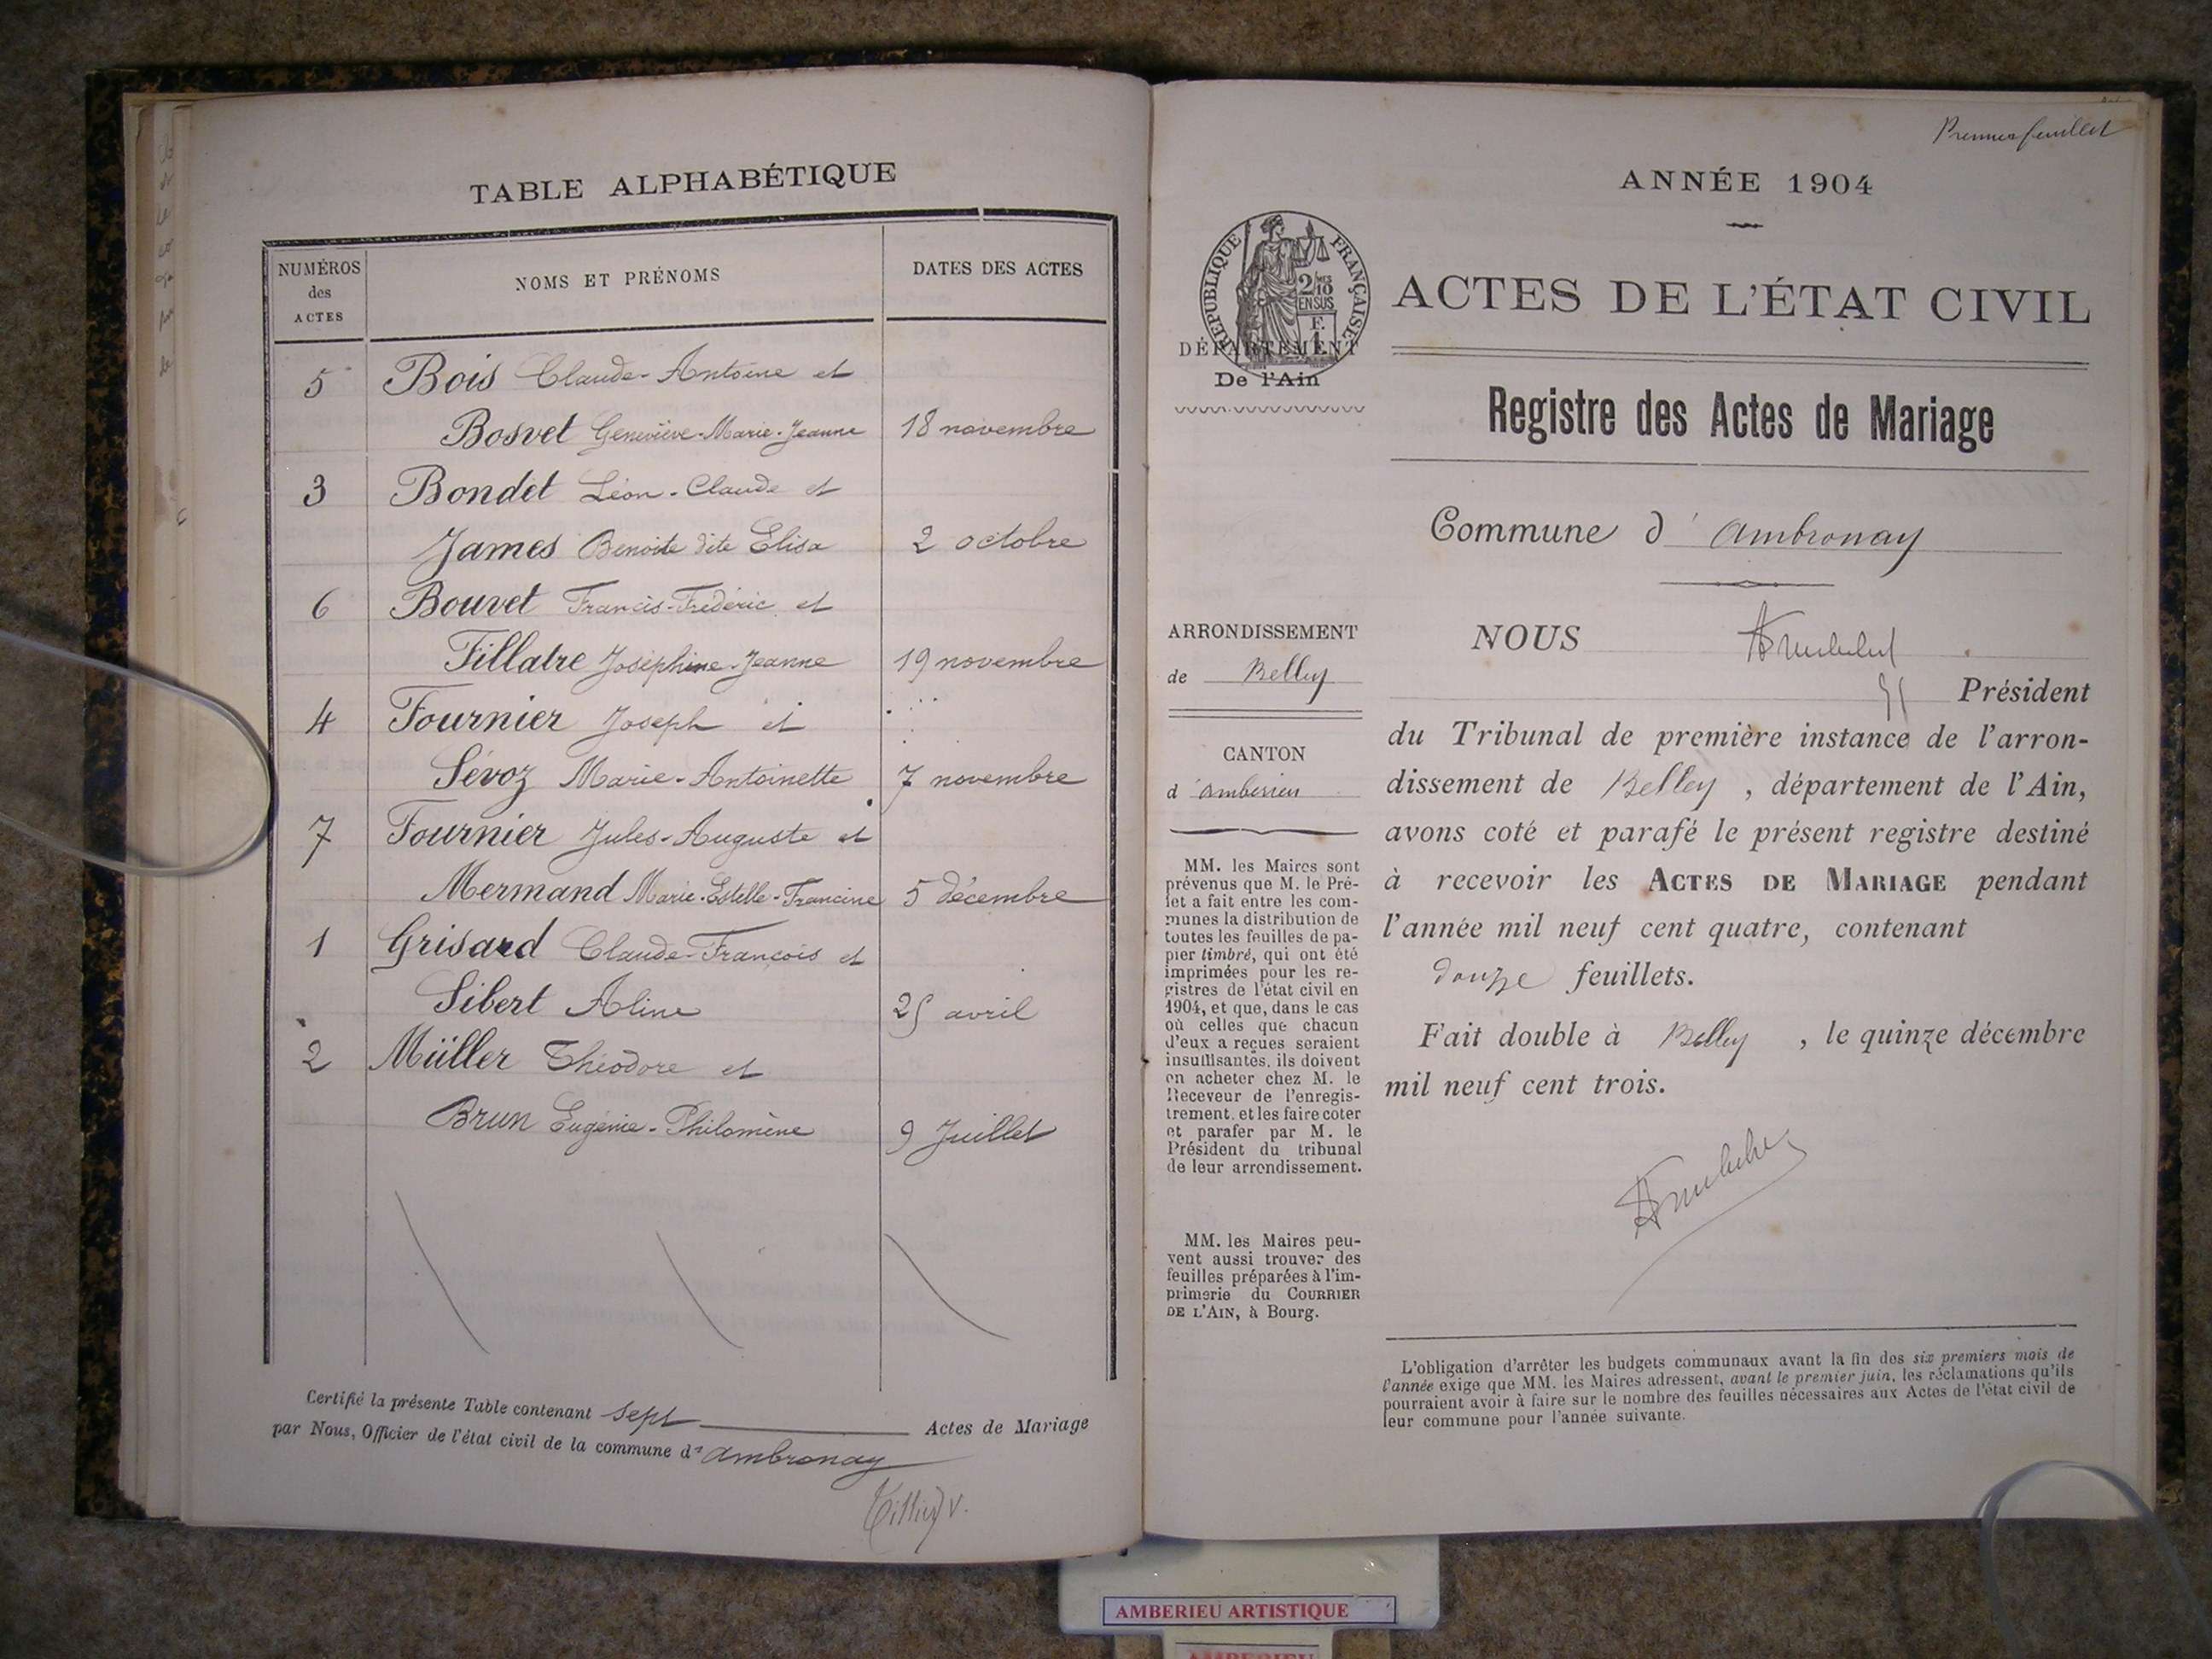 TABLE ALPHABÉTIQUE
NUMÉROS
des
ACTES
NOMS ET PRÉNOMS
DATES DES ACTES
5 Bois Claude-Antoine et
Bosvet Geneviève-Marie-Jeanne 18 novembre
3 Bondet Léon-Claude et
James Benoite dite Elisa 2 octobre
6 Bouvet Francis-Frédéric et
Fillatre Joséphine-Jeanne 19 novembre
4 Fournier Joseph et
Sévoz Marie-Antoinette 7 novembre
7 Fournier Jules-Auguste et
Mermand Marie-Estelle-Francine 5 décembre
1 Grisard Claude-François et
Sibert Aline 25 avril
2 Müller Théodore et
Brun Eugénie-Philomène 9 Juillet
Certifié la présente Table contenant sept Actes de Mariage
par Nous, Officier de l'état civil de la commune d' Ambronay
Premier feuillet
ANNÉE 1904
RÉPUBLIQUE FRANÇAISE
2/10
EN SUS
F.
1.
DÉPARTEMENT
De l'Ain
ACTES DE L'ÉTAT CIVIL
Registre des Actes de Mariage
Commune d' Ambronay
ARRONDISSEMENT
de Belley
CANTON
d'Ambérieu
MM. les Maires sont
prévenus que M. le Pré-
fet a fait entre les com-
munes la distribution de
toutes les feuilles de pa-
pier timbré, qui ont été
imprimées pour les re-
gistres de l'état civil en
1904, et que, dans le cas
où celles que chacun
d'eux a reçues seraient
insuffisantes, ils doivent
en acheter chez M. le
Receveur de l'enregis-
trement, et les faire coter
et parafer par M. le
Président du tribunal
de leur arrondissement.
MM. les Maires peu-
vent aussi trouver des
feuilles préparées à l'im-
primerie du COURRIER
DE L'AIN, à Bourg.
NOUS
Président
du Tribunal de première instance de l'arron-
dissement de Belley, département de l'Ain,
avons coté et parafé le présent registre destiné
à recevoir les ACTES DE MARIAGE pendant
l'année mil neuf cent quatre, contenant
douze feuillets.
Fait double à Belley, le quinze décembre
mil neuf cent trois.
L'obligation d'arrêter les budgets communaux avant la fin des six premiers mois de
l'année exige que MM. les Maires adressent, avant le premier juin, les réclamations qu'ils
pourraient avoir à faire sur le nombre des feuilles nécessaires aux Actes de l'état civil de
leur commune pour l'année suivante.
AMBERIEU ARTISTIQUE
AMBERIEU